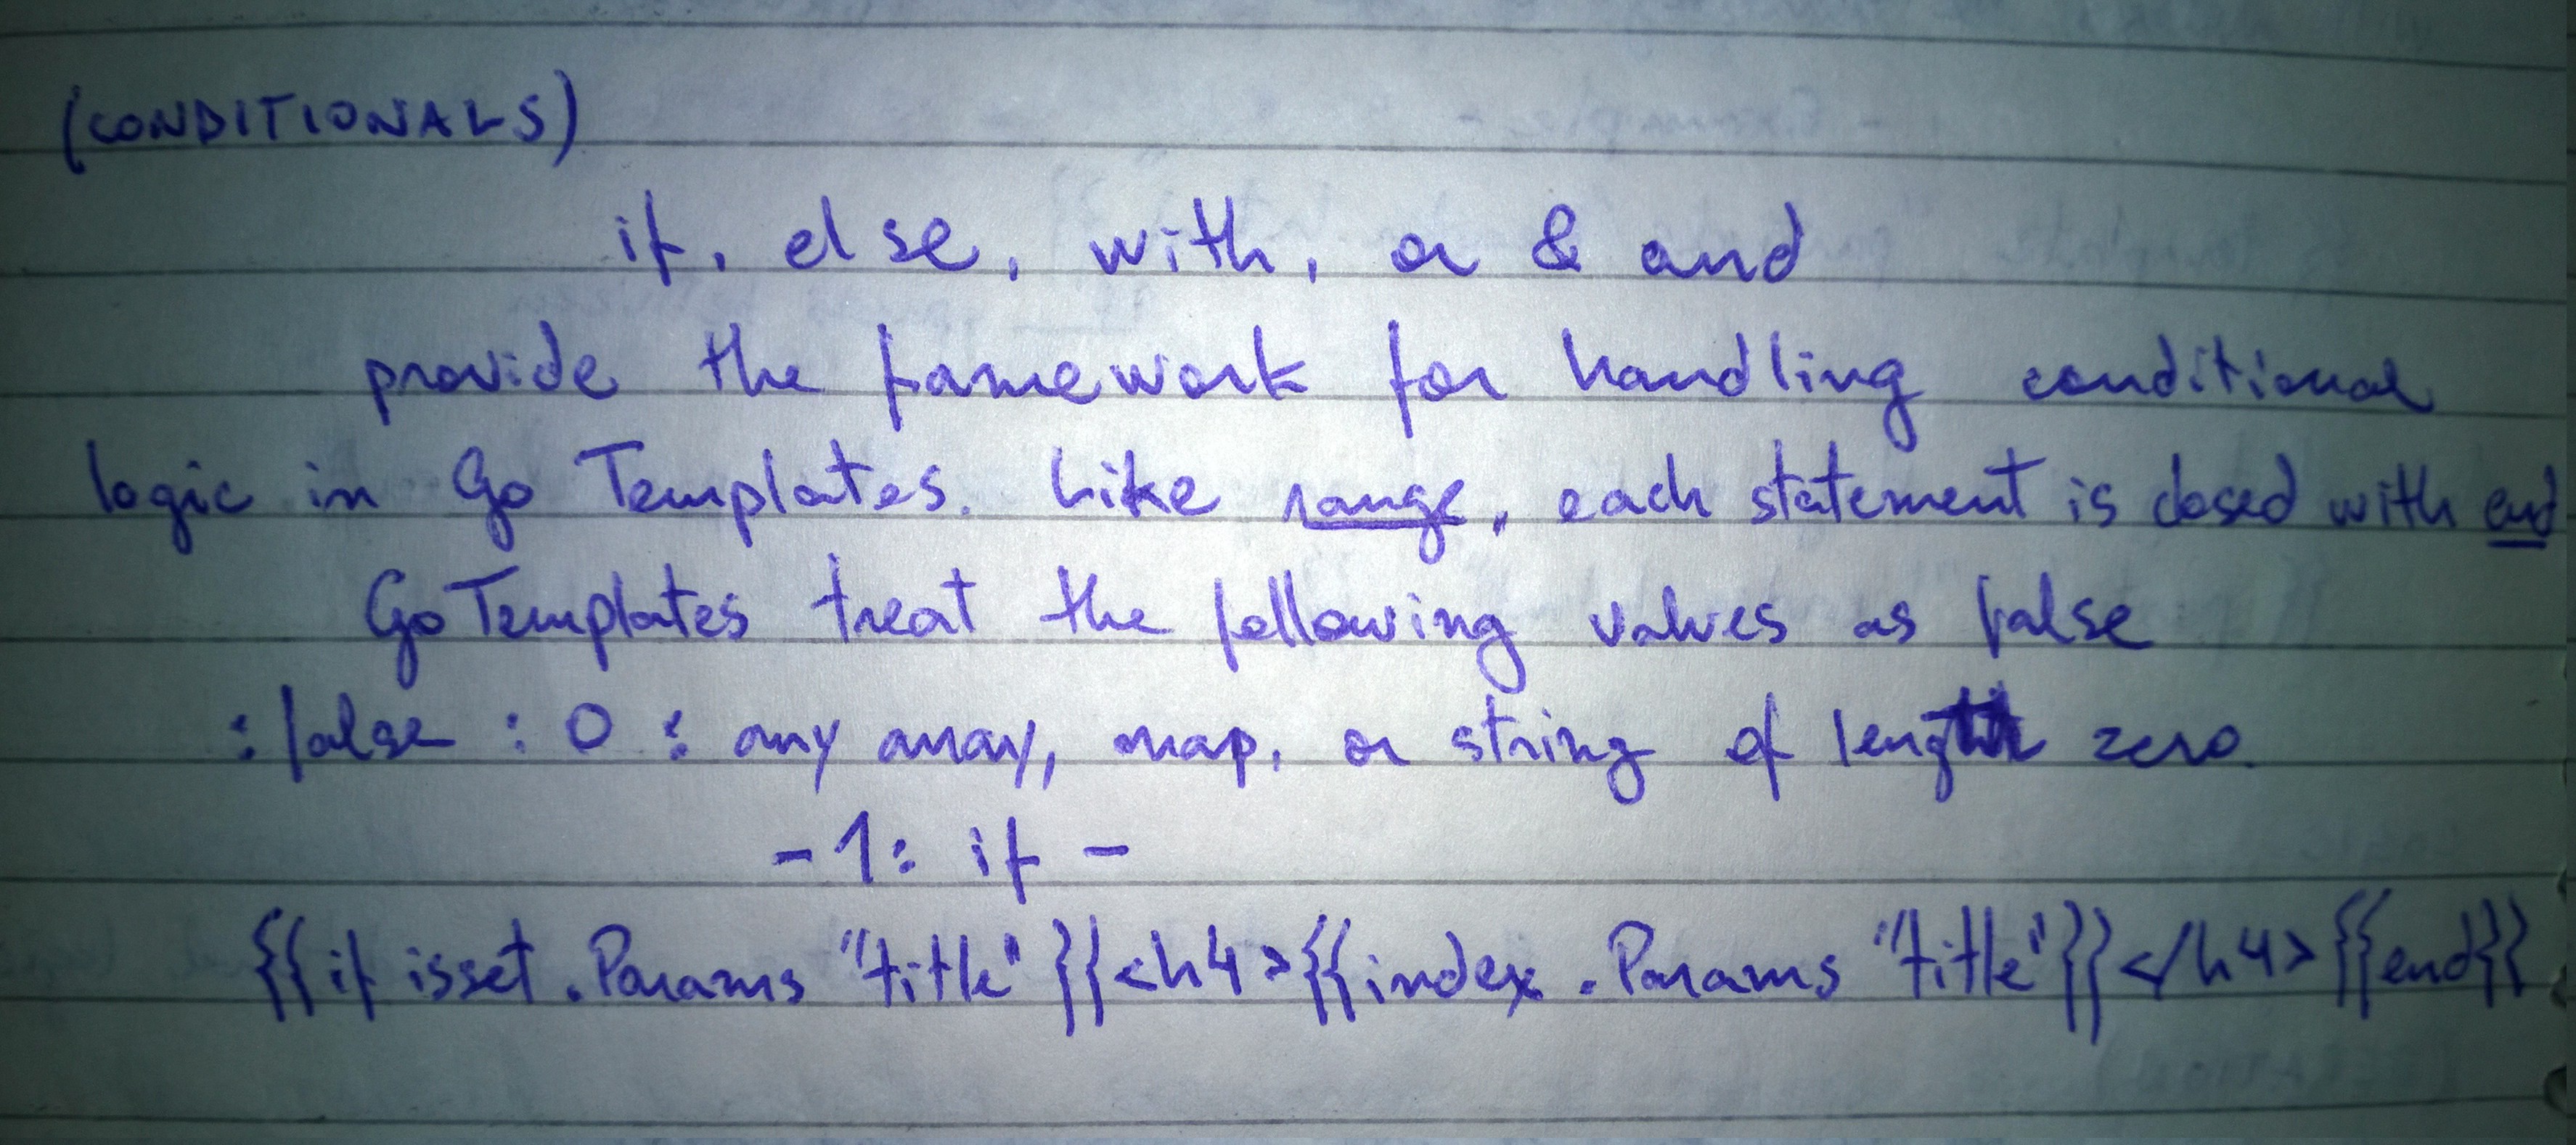 (CONDITIONALS)
if, else, with, or & and
provide the framework for handling conditional
logic in Go Templates. Like range, each statement is closed with end
Go Templates treat the following values as false
: false : 0 : any array, map, or string of length zero.
- 1: if -
{{if isset .Params "title"}}<h4>{{index .Params "title"}}</h4>{{end}}